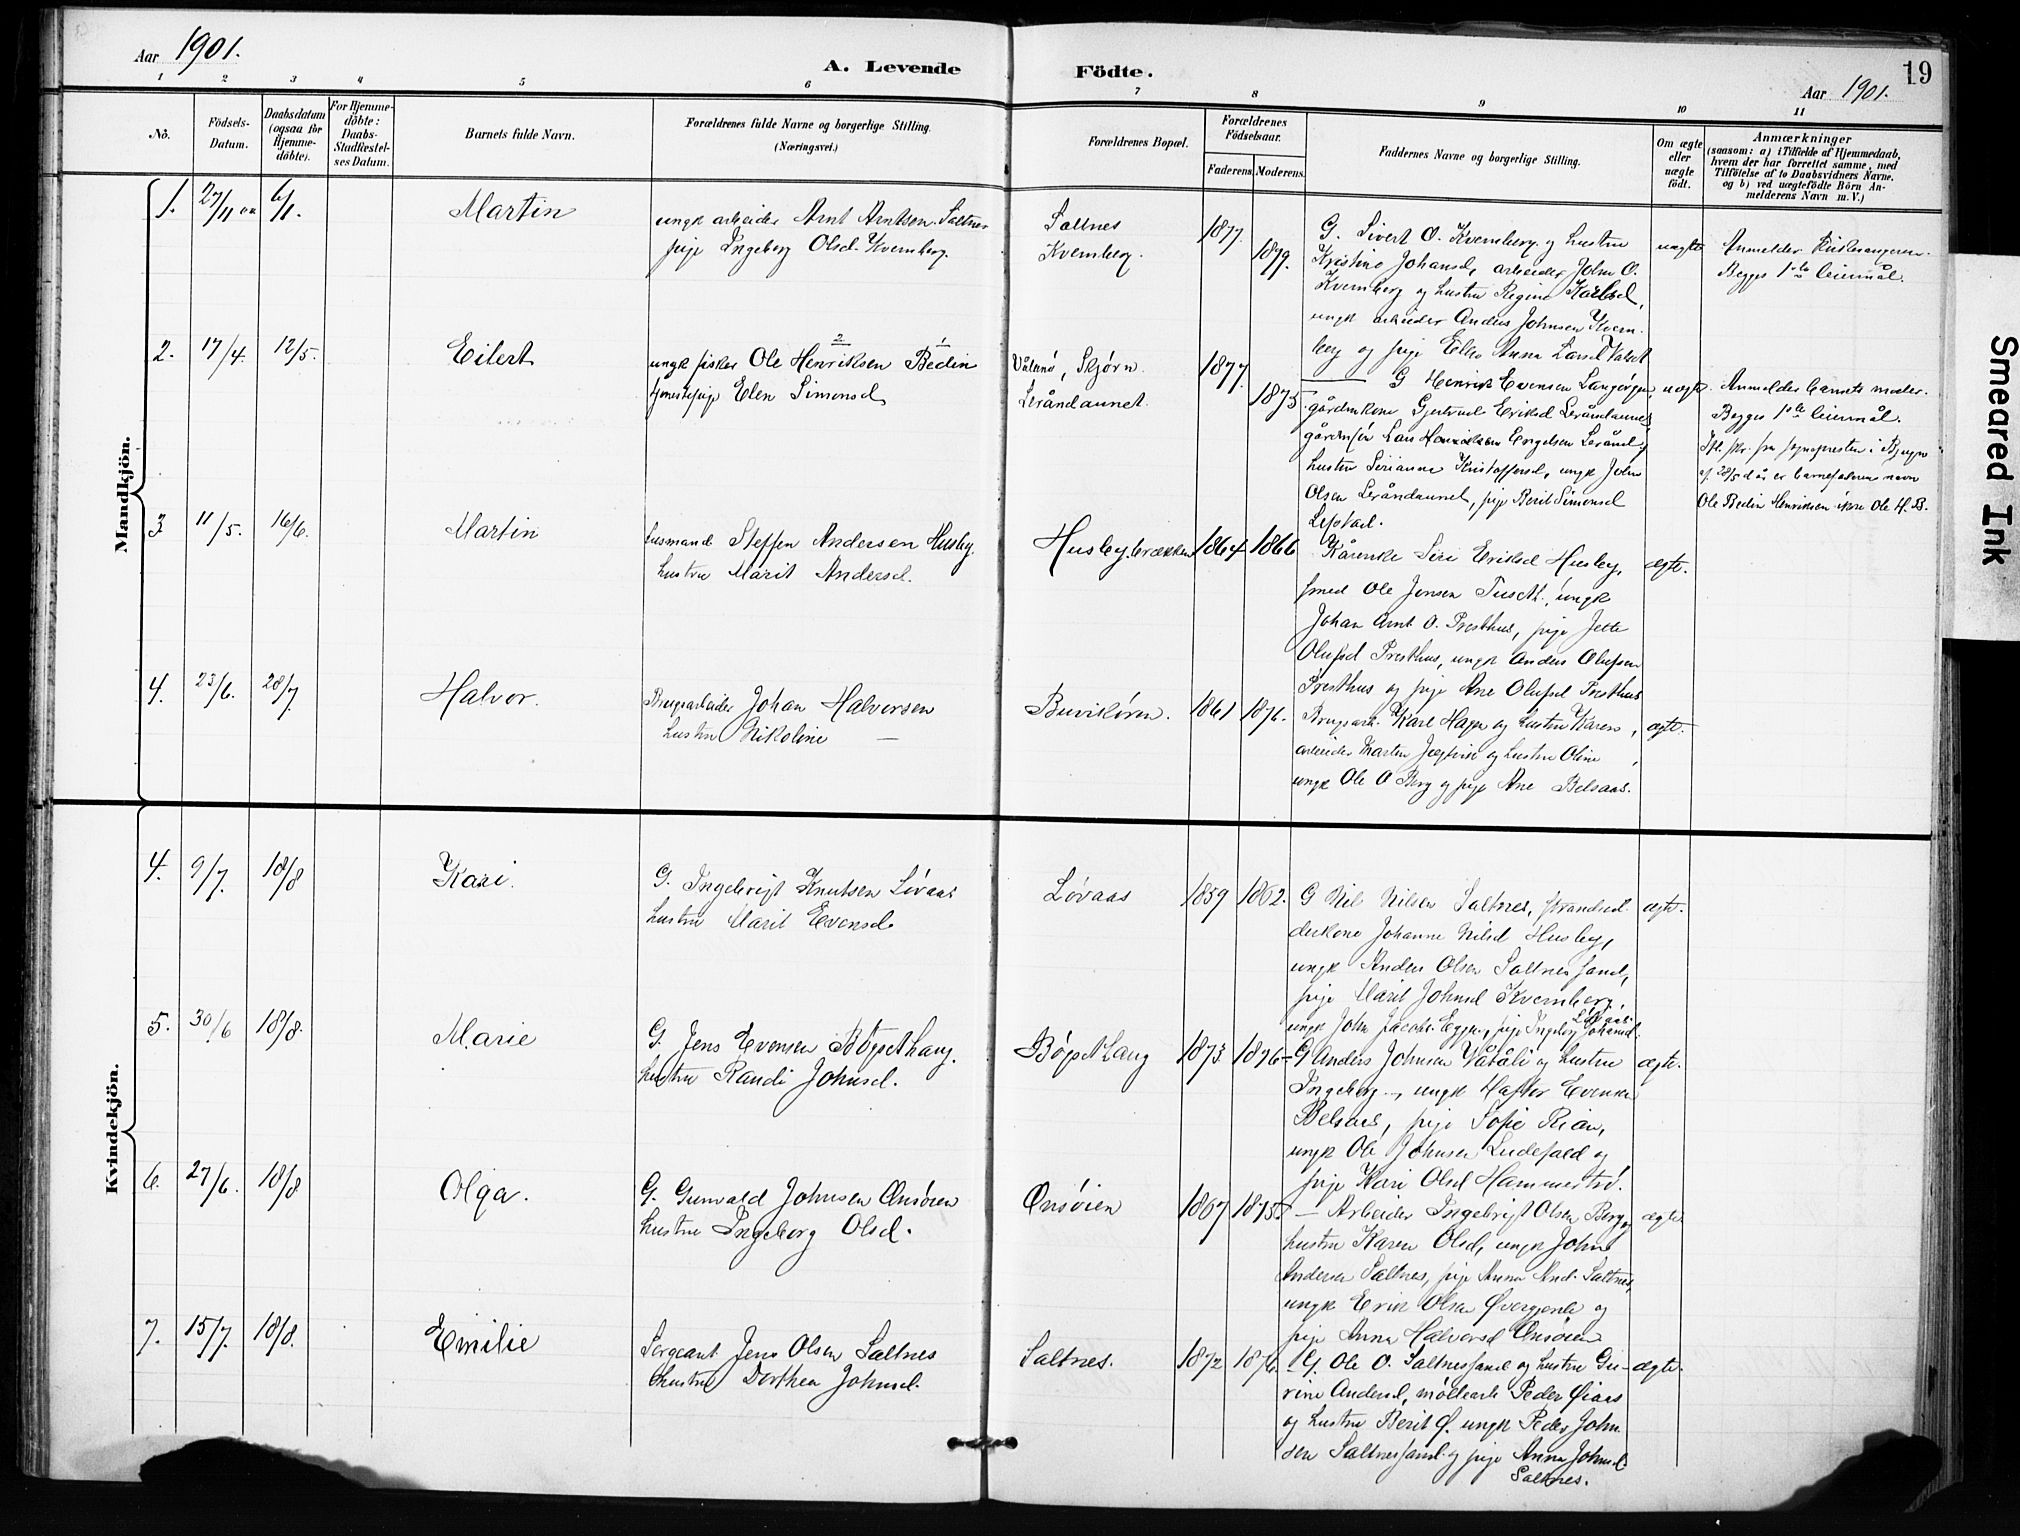 Aar 1901.
A. Levende Födte.
Aar 1901.
19
1 2 3 4 5 6 7 8 9 10 11
No.
Födsels-
Datum.
Daabsdatum
(ogsaa for
Hjemme-
döbte).
For Hjemme-
döbte:
Daabs-
Stadfæstel-
ses Datum.
Barnets fulde Navn.
Forældrenes fulde Navne og borgerlige Stilling.
(Næringsvei.)
Forældrenes Bopæl.
Forældrenes
Födselsaar.
Faderens. Moderens.
Faddernes Navne og borgerlige Stilling.
Om ægte
eller
uægte
födt.
Anmærkninger
(saasom: a) i Tilfælde af Hjemmedaab,
hvem der har forrettet samme, med
Tilföielse af to Daabsvidners Navne,
og b) ved uægtefödte Börn An-
melderens Navn m.V.)
Mandkjön.
1. 27/11 00 6/1. Martin
ungk arbeider Arnt Arntsen Saltnes
pige Ingeborg Olsd. Kvernberg.
Saltnes
Kvernberg.
1877. 1879.
G. Sivert O. Kvernberg og hustru
Kristine Johansd, arbeider John O.
Kvernberg og hustru Regine Karlsd,
ungk arbeider Anders Johnsen Kvern-
berg og pige Ellen Anna Larsd
uægte
Anmelder
Begges 1ste leiermål.
2. 17/4. 12/5. Eilert
2 1
ungk fisker Ole Henriksen Bedin
tjenestepige Elen Simonsd
Valsnø, Skjørn
Leråndaunet.
1877. 1875.
G Henrik Evensen
gårdmkone Gjertrud Eriksd Leråndaunet,
gårdmsøn Lars Engelsen Leränd,
hustru Kristoffersd, ungk John
Olsen Leråndaunet, pige Berit Simonsd
uægte
Anmelder barnets moder.
Begges 1ste leiermål.
Ifl. skr. fra sognepresten i Bjugn
af 28/5 d år er barnefaderens navn
Ole Bedin Henriksen ikke Ole H. B.
3 11/5. 16/6. Martin
husmand Steffen Andersen Husby.
hustru Marit Andersd.
Husbybrækken
1864 1866
Kårenke Siri Eriksd Husby,
smed Ole Jensen, ungk
Johan Arnt O. Presthus, pige Jette
Olufsd Presthus, ungk Anders Olufsen
Presthus og pige Ane Olufsd Presthus
ægte.
4. 23/6. 28/7. Halvor.
Brugsarbeider Johan Halvorsen
hustru Nikoline —
Buvikören.
1861 1876.
Brugsarb. Karl Hagen og hustru Karen,
arbeider Martin og hustru Oline,
ungk Ole O Berg og pige Ane Belsaas.
ægte.
Kvindekjön.
4. 9/7. 18/8 Kari.
G. Ingebrigt Knutsen Løvaas
hustru Marit Evensd.
Løvaas
1859 1862.
G Nil Nilsen Saltnes, strandsid-
derkone Johanne Nilsd Husby,
ungk Anders Olsen Saltnessand,
pige Marit Johnsd Kvernberg,
ungk John Jacobs. Eggen, pige Ingeborg Johansd.
Løvaas.
ægte.
5. 30/6 18/8. Marie
G. Jens Evensen Bögsethaug.
hustru Randi Johnsd.
Bögsethaug
1873 1876
G Anders Johnsen Våtåli og hustru
Ingeborg —, ungk Haftor Evensen
Belsaas, pige Sofie Rian,
ungk Ole Johnsen Ludefald og
pige Kari Olsd Hammestrø.
ægte.
6. 27/6. 18/8 Olga.
G. Gunvald Johnsen Onsøien
hustru Ingeborg Olsd.
Onsøien
1867 1875
— Arbeider Ingebrigt Olsen Berg og
hustru Karen Olsd, ungk John
Andersen Saltnes, pige Anna And. Saltnes,
ungk Erik Olsen og
pige Anna Halvorsd Onsøien
ægte
7. 15/7. 18/8. Emilie
Sergeant Jens Olsen Saltnes
hustru Dorthea Johnsd.
Saltnes.
1872 1876.
G. Ole O. Saltnessand og hustru Gu-
rine Andersd, Peder Øiaas
og hustru Berit Ø. ungk Peder John-
sen Saltnessand og pige Anna Johnsd
Saltnes.
ægte.
Smeared Ink